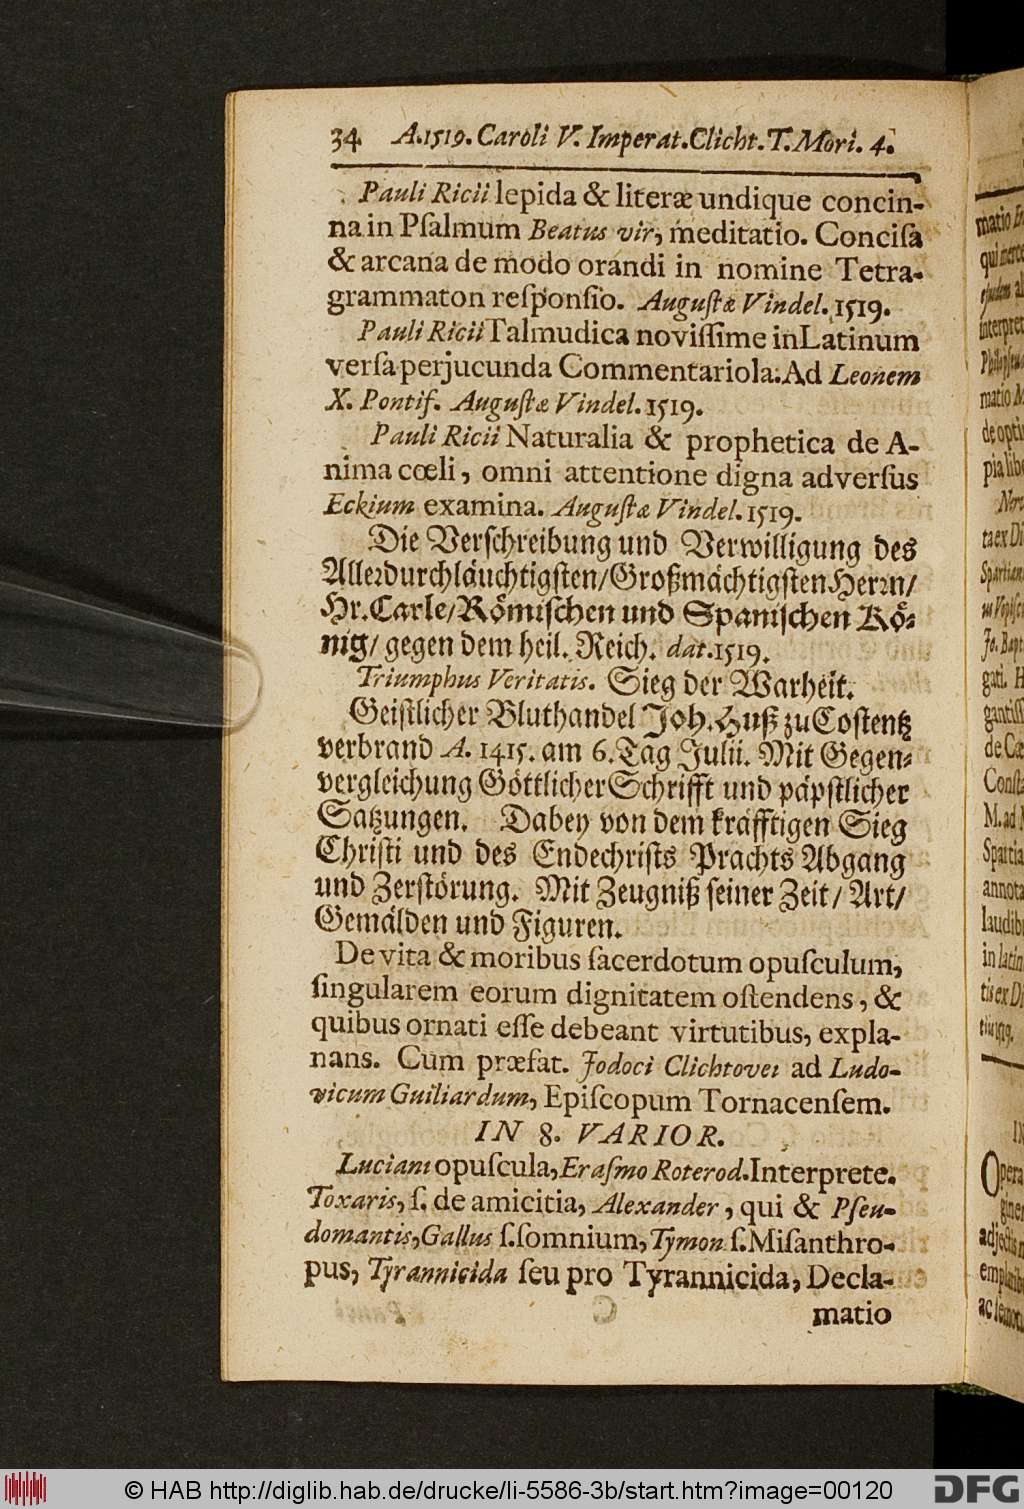 34 A. 1519. Caroli V. Imperat. Clicht. T. Mori. 4.
Pauli Ricii lepida & literæ undique concin-
na in Pſalmum Beatus vir, meditatio. Conciſa
& arcana de modo orandi in nomine Tetra-
grammaton reſponſio. Auguſtæ Vindel. 1519.
Pauli Ricii Talmudica noviſſime in Latinum
verſa perjucunda Commentariola. Ad Leonem
X. Pontif. Auguſtæ Vindel. 1519.
Pauli Ricii Naturalia & prophetica de A-
nima cœli, omni attentione digna adverſus
Eckium examina. Auguſtæ Vindel. 1519.
Die Verſchreibung und Verwilligung des
Allerdurchläuchtigſten/ Großmächtigſten Herrn/
Hr. Carle/ Römiſchen und Spaniſchen Kö-
nig/ gegen dem heil. Reich. dat. 1519.
Triumphus Veritatis. Sieg der Warheit.
Geiſtlicher Bluthandel Joh. Huß zu Coſtentz
verbrand A. 1415. am 6. Tag Julii. Mit Gegen-
vergleichung Göttlicher Schrifft und päpſtlicher
Satzungen. Dabey von dem kräfftigen Sieg
Chriſti und des Endechriſts Prachts Abgang
und Zerſtörung. Mit Zeugniß ſeiner Zeit/ Art/
Gemälden und Figuren.
De vita & moribus ſacerdotum opuſculum,
ſingularem eorum dignitatem oſtendens, &
quibus ornati eſſe debeant virtutibus, expla-
nans. Cum præfat. Jodoci Clichtovei ad Ludo-
vicum Guiliardum, Epiſcopum Tornacenſem.
IN 8. VARIOR.
Luciani opuſcula, Eraſmo Roterod. Interprete.
Toxaris, ſ. de amicitia, Alexander, qui & Pſeu-
domantis, Gallus ſ. ſomnium, Tymon ſ. Miſanthro-
pus, Tyrannicida ſeu pro Tyrannicida, Decla-
matio
© HAB http://diglib.hab.de/drucke/li-5586-3b/start.htm?image=00120
DFG